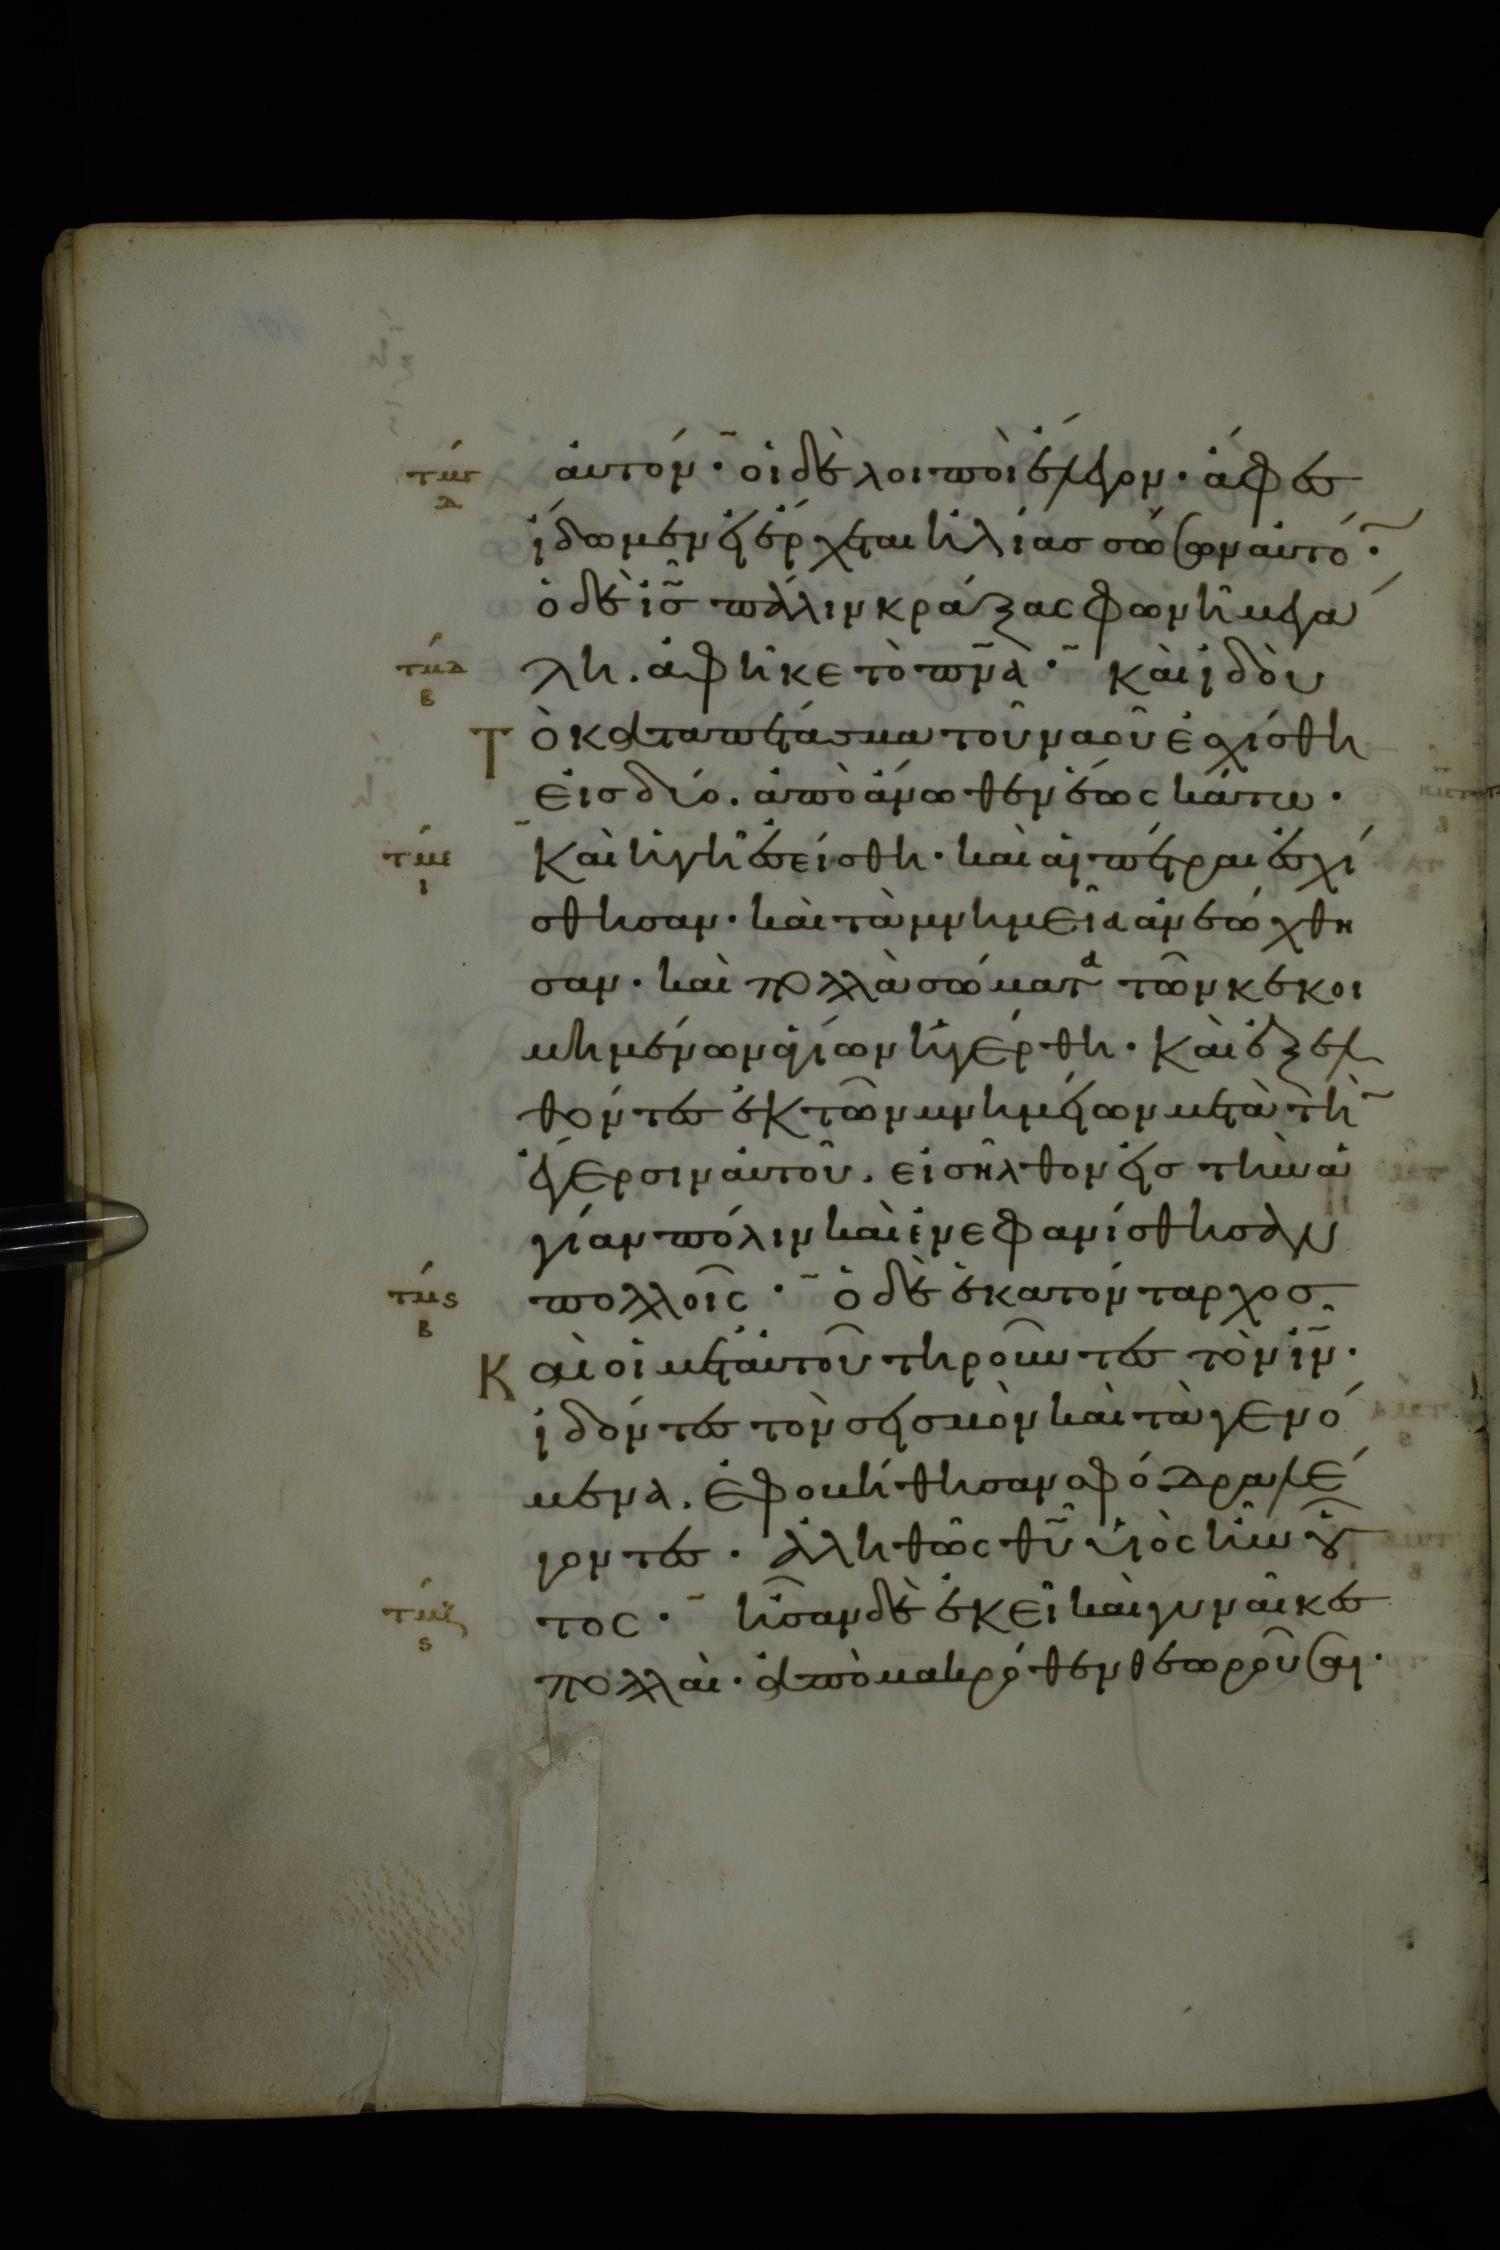 τμγ
δ
αὐτόν· οἱ δὲ λοιποὶ ἔλεγον· ἄφες
ἴδωμεν εἰ ἔρχεται ἠλίασ σώσων αὐτό·
ὁ δὲ ι̅σ̅ πάλιν κράξας φωνῆ μεγά
τμδ
β
λη. ἀφῆκε τὸ πν̅α̅· καὶ ἰδοὺ
Τὸ καταπέτασμα τοῦ ναοῦ ἐσχίσθη
εἰσ δύο. ἀπὸ ἄνωθεν ἕως κάτω·
τμε
ι
Καὶ ἡ γῆ ἐσείσθη· καὶ αἱ πέτραι ἐσχί
σθησαν· καὶ τὰ μνημεῖα ἀνεώχθη
σαν· καὶ πολλὰ σώματα τῶν κεκοι
μημένων ἁγίων ἠγέρθη· Καὶ ἐξελ
θόντες ἐκ τῶν μνημείων μετὰ τὴ
ἔγερσιν αὐτοῦ. εἰσῆλθον εἰσ τὴν ἁ
γίαν πόλιν καὶ ἐνεφανίσθησαν
τμς
β
πολλοῖς· ὁ δὲ ἑκατόνταρχοσ
Καὶ οἱ μετ' αὐτοῦ τηροῦντες τὸν ι̅ν̅·
ἰδόντες τὸν σεισμὸν καὶ τὰ γενό
μενα. ἐφοβήθησαν σφόδρα λέ
γοντες· ἀληθῶς θ̅υ̅ υἱὸς ἦν οὗ
τμζ
ς
τος· ἦσαν δὲ ἐκεῖ καὶ γυναῖκες
πολλαὶ· ἀπὸ μακρόθεν θεωροῦσαι·